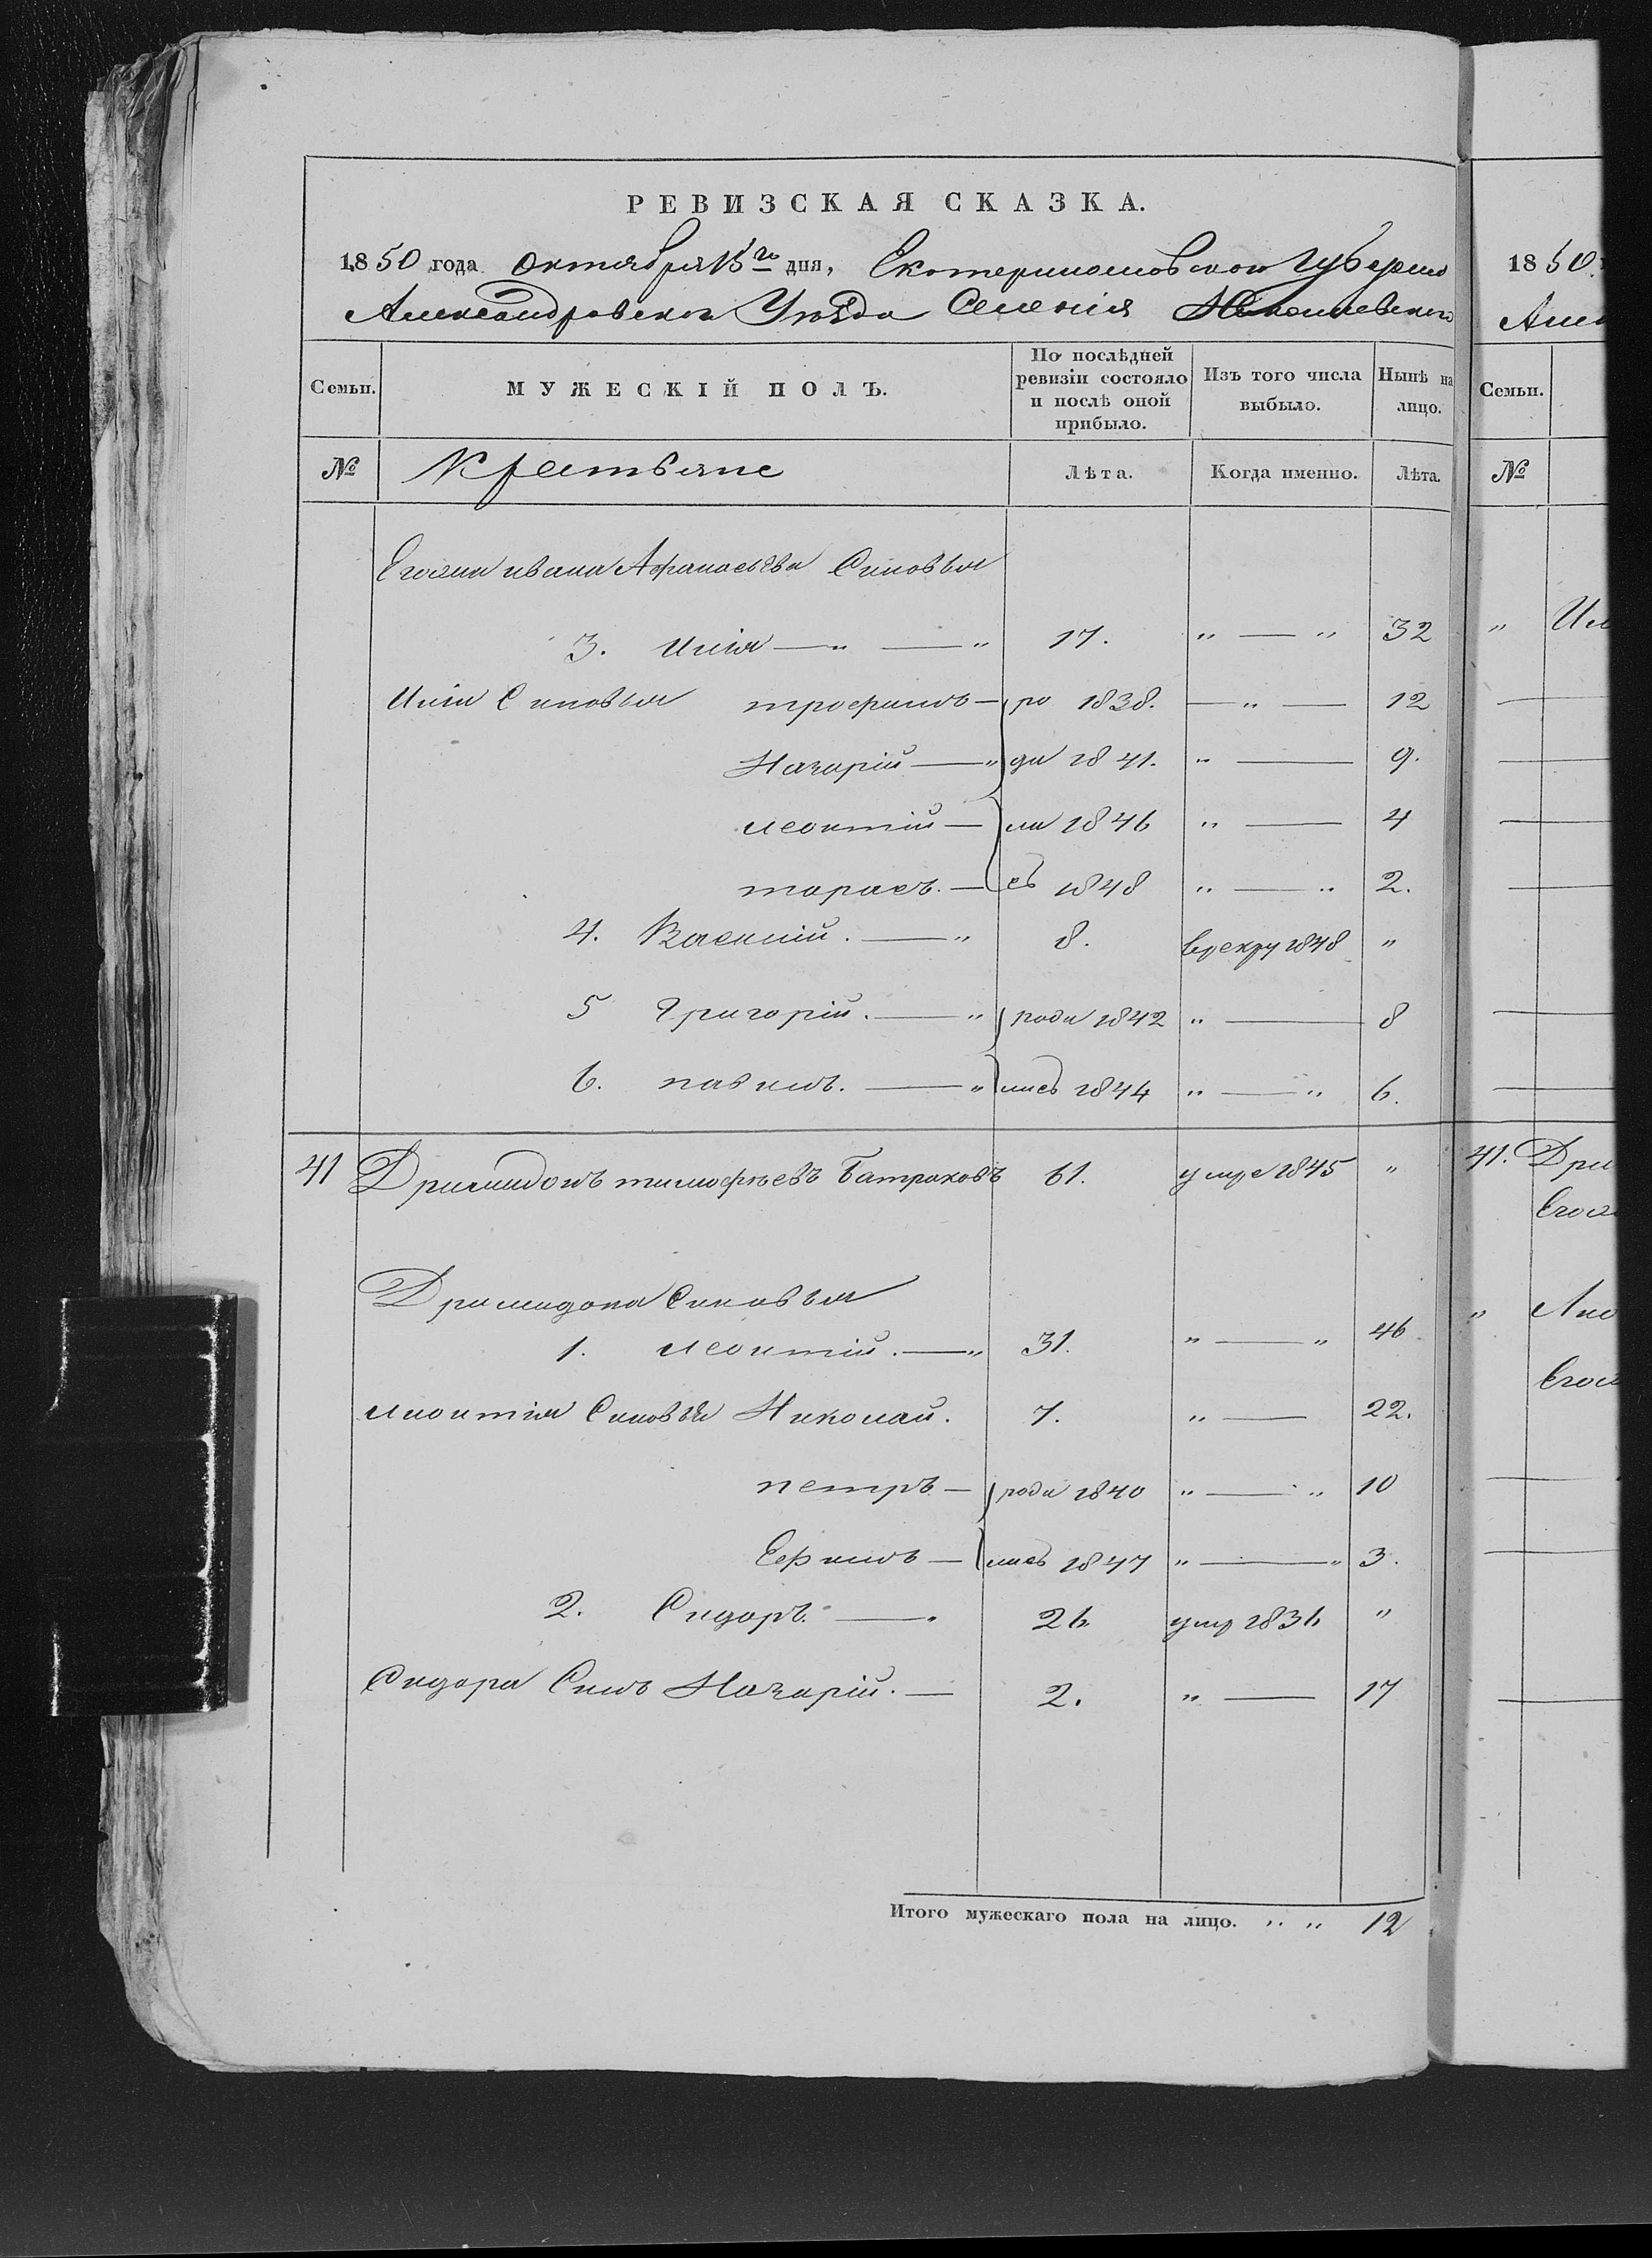 РЕВИЗСКАЯ СКАЗКА.
1850 года Октября 15го дня, Екатеринославской Губерніи
Александровскаго Уѣзда Селенія
Семьи. МУЖЕСКІЙ ПОЛЪ. По послѣдней ревизіи состояло и послѣ оной прибыло. Изъ того числа выбыло. Нынѣ на лицо.
№ Крестьяне Лѣта. Когда именно. Лѣта.
Ивана Афанасьева Синовья
3. Илія — „ — „ 17. „ — „ 32
Иліи Синовья трофимъ — ро 1838. — „ — 12
Назарій — „ ди 1841. „ — 9.
леонтій — ли 1846 „ — 4
тарасъ. — сь 1848 „ — „ 2.
4. Василій. — „ 8. врекру 1848 „
5 Григорій. — „ роди 1842 „ — 8
6. павилъ. — „ лись 1844 „ — „ 6.
41 Дримидонъ тимофѣевъ Батраковъ 61. умре 1845 „
Дримидона Синовья
1. леонтій. — „ 31. „ — „ 46
леонтія Синовья Николай. 7. „ — 22.
петръ — роди 1840 „ — „ 10
Ефимъ — лись 1847 „ — „ 3.
2. Сидоръ — . 26 умр 1836 „
Сидора Синъ Назарій. — 2. „ — 17
Итого мужескаго пола на лицо. „ „ 12
1850
Семьи.
№
„
41. Дри
Его
„
Его